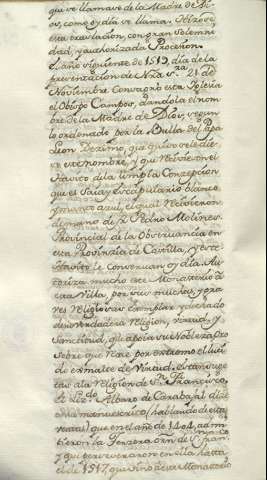 que se llamava de la Madre de Di-
os, como oy dia se llama. Hizose
esta translacion, con gran solemni
dad, y autorizada Procesion.
el año siguiente de 1519, dia de la
presentacion de Nrã. Srã. 21 de
Noviembre Consagro esta Iglesia
el Obispo Campos, dandola el nom
bre de la Madre de Dios, segun
lo ordenado por la Bulla del Papa
Leon Dezimo, que quiso se le die-
se este nombre, y que vistiesen el
Havito de la limpia Concepcion
que es Saya, y escapulario blanco
y manto azul, el qual recivieron
de mano de fr. Pedro Molines
Provincial de la Observancia en
esta Provincia de Castilla, y este
Havito le conservan oy dia. Au-
toriza mucho este Monasterio a
esta Villa, por ser muchas, y gra-
ves Religiosas exemplar y dechado
de verdadera religion, virtud, y
Santidad, que apoya su Nobleza pro
sobre que nace por extremo el luci
do esmalte de Virtud. Estan suge-
tas a la religion de Sn. Francisco.
el Lizdo. Alonso de Carabajal dize
en su manuescrito (hablando de esta
casa) que en el año de 1404 admi
tieron la Terzera orñ. de S. Fran.co
y que perseveraron en ella hasta
el de 1517, que vino a este Monasterio